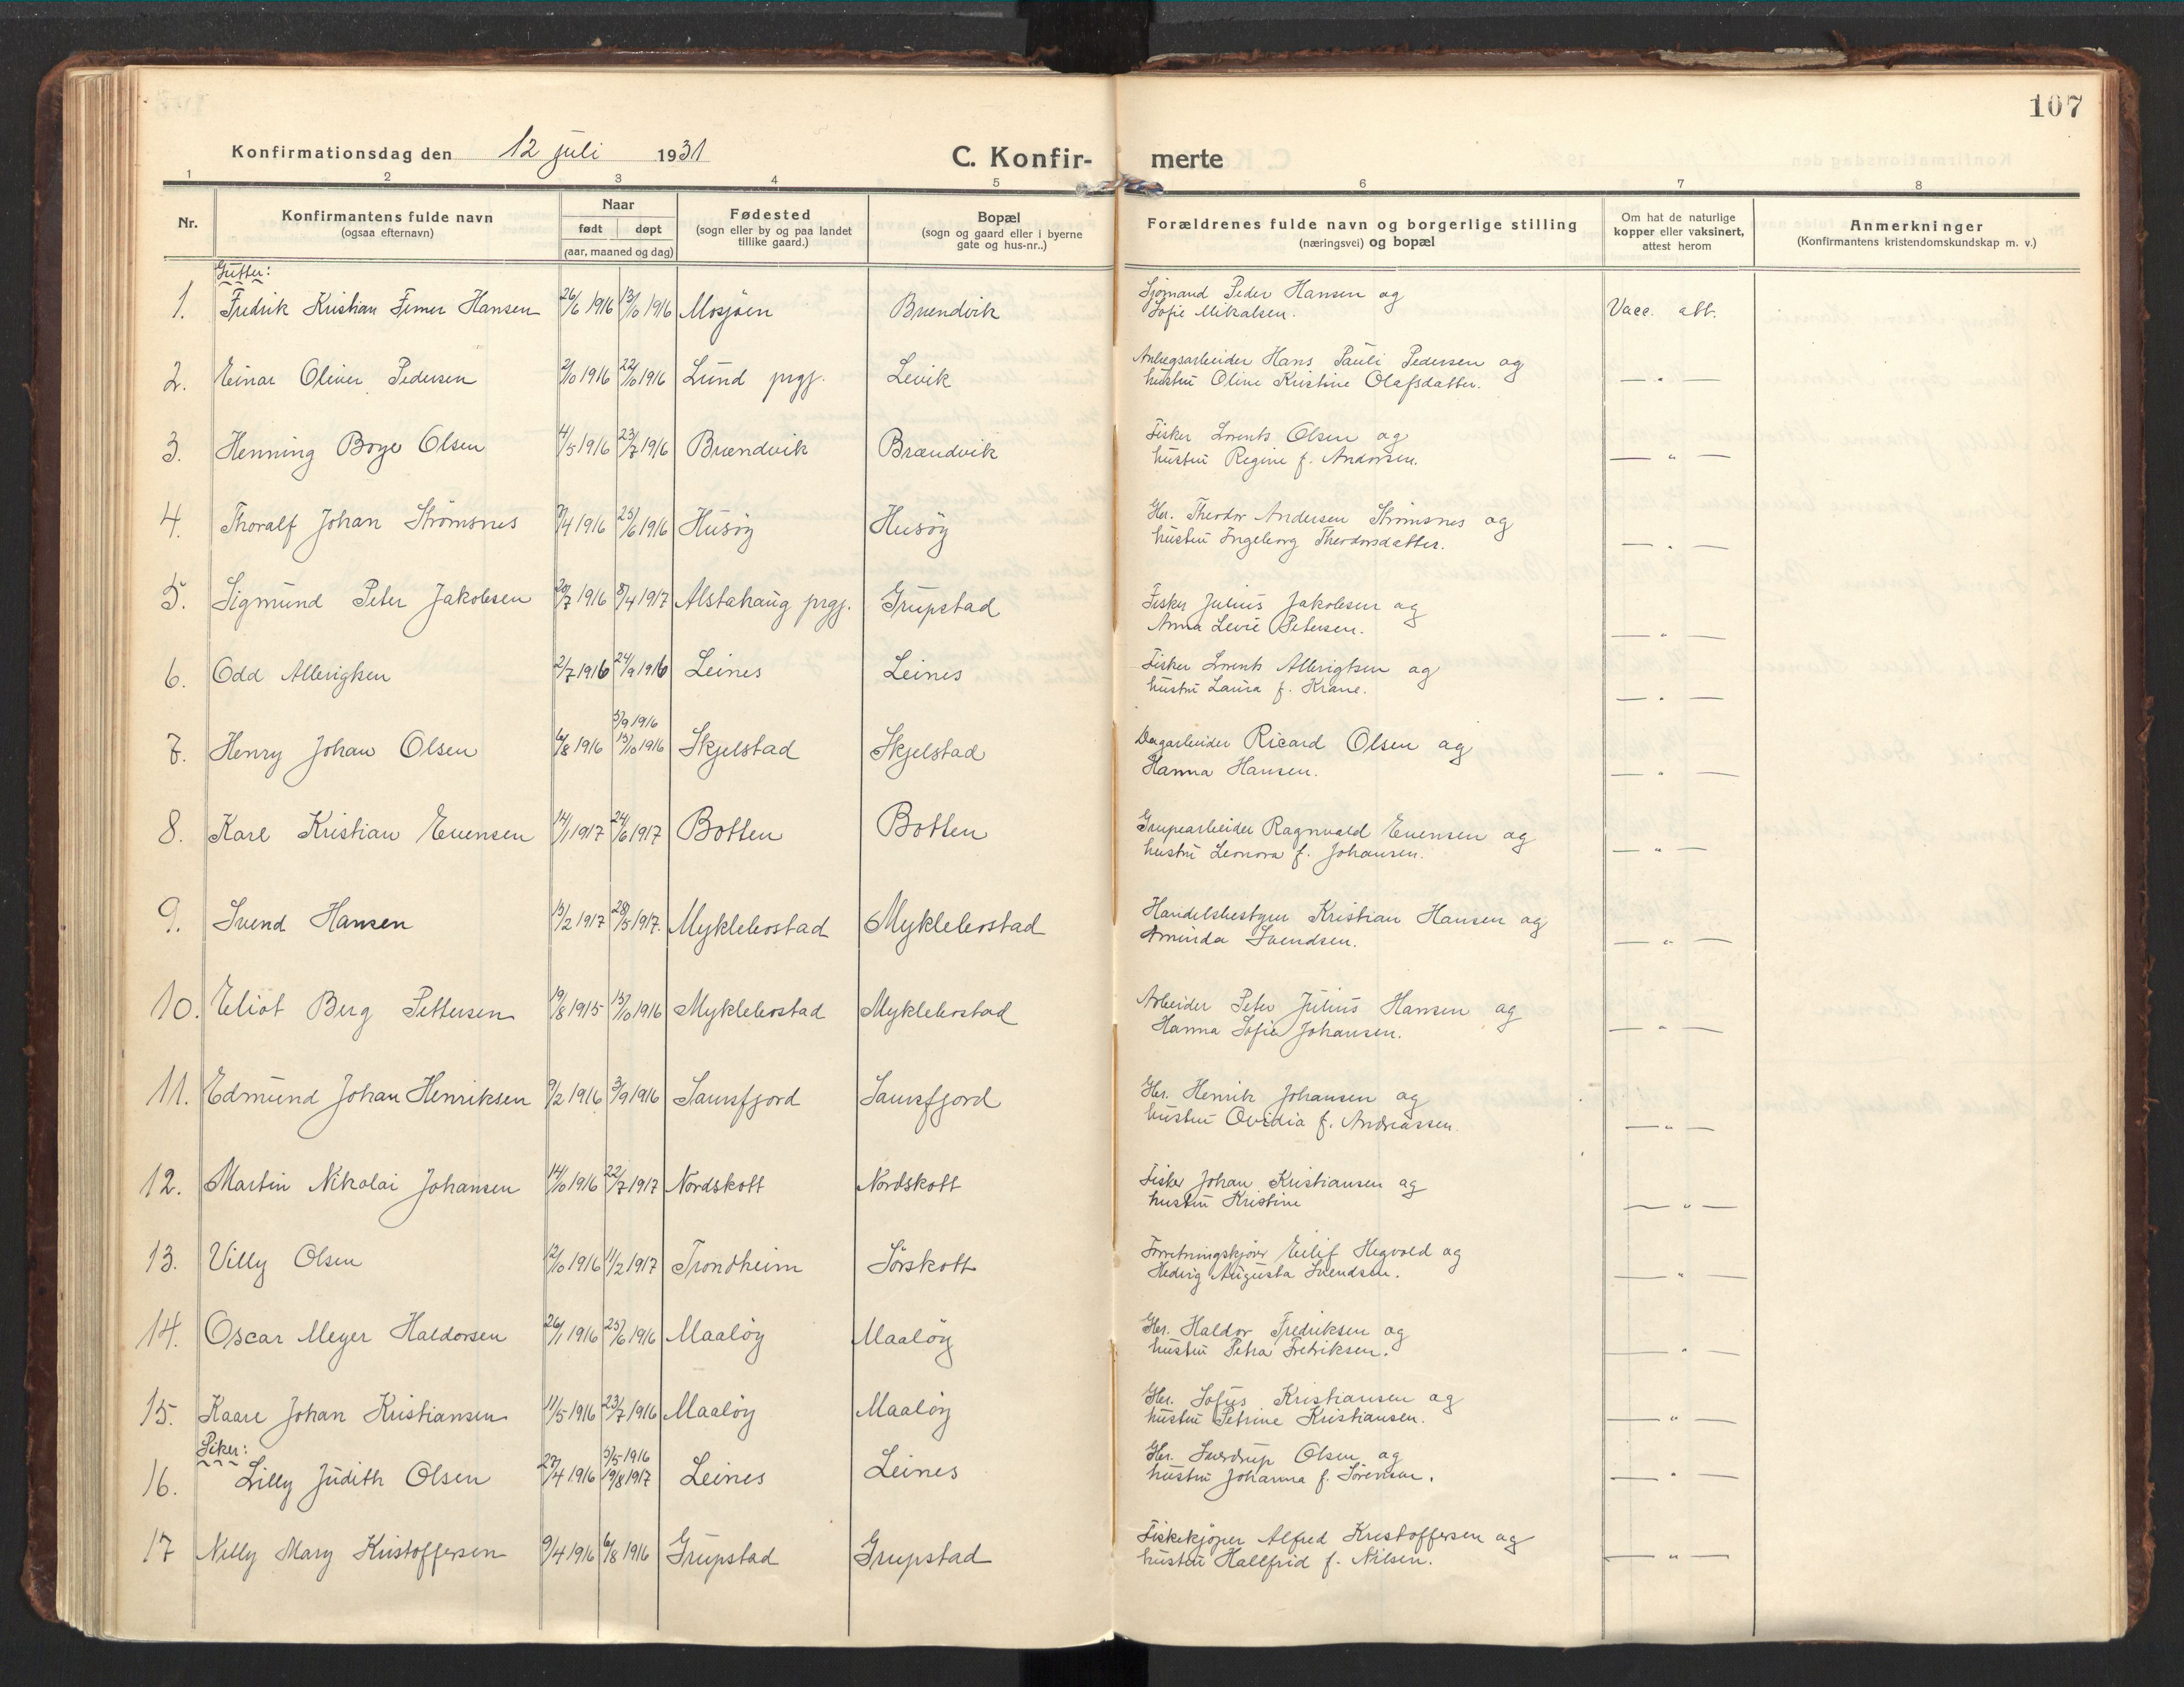 107
Konfirmationsdag den 12 juli 1931
C. Konfir- merte
1 2 3 4 5 6 7 8
Nr.
Konfirmantens fulde navn
(ogsaa efternavn)
Naar
født døpt
(aar, maaned og dag)
Fødested
(sogn eller by og paa landet
tillike gaard.)
Bopæl
(sogn og gaard eller i byerne
gate og hus-nr..)
Forældrenes fulde navn og borgerlige stilling
(næringsvei) og bopæl
Om hat de naturlige
kopper eller vaksinert,
attest herom
Anmerkninger
(Konfirmantens kristendomskundskap m. v.)
Gutter:
1. Fredrik Kristian Femer Hansen 26/6 1916 13/10 1916 Mosjøen Brendvik Sjømand Peder Hansen og
Sofie Mikalsen. Vacc. att.
2. Einar Oliver Pedersen 2/10 1916 22/10 1916 Lund prgj. Levik Anlegsarbeider Hans Pauli Pedersen og
hustru Oline Kristine Olafsdatter. — " —
3. Henning Boye Olsen 4/5 1916 23/7 1916 Brændvik Brændvik Fisker Lorents Olsen og
hustru Regine f. Andorsen. — " —
4. Thoralf Johan Strømsnes /4 1916 25/6 1916 Husøy Husøy Gbr. Theodor Andersen Strømsnes og
hustru Ingeborg Theodorsdatter. — " —
5. Sigmund Peter Jakobsen 20/7 1916 8/4 1917 Alstahaug prgj. Grupstad Fisker Julius Jakobsen og
Anna Levie Petersen. — " —
6. Odd Albrigtsen 2/7 1916 24/9 1916 Leines Leines Fisker Lorents Albrigtsen og
hustru Laura f. Krane. — " —
3/9 1916
7. Henry Johan Olsen 6/8 1916 15/10 1916 Skjelstad Skjelstad Dagarbeider Ricard Olsen og
Hanna Hansen. — " —
8. Kare Kristian Evensen 14/1 1917 24/6 1917 Botten Botten Grupearbeider Ragnvald Evensen og
hustru Leonora f. Johansen. — " —
9. Svend Hansen 15/2 1917 28/5 1917. Myklebostad Myklebostad Handelsbestyrer Kristian Hansen og
Aminda Svendsen. — " —
10. Eliot Berg Pettersen 19/8 1915 15/10 1916 Myklebostad Myklebostad Arbeider Peter Julius Hansen og
Hanna Sofie Johansen. — " —
11. Edmund Johan Henriksen 9/2 1916 3/9 1916 Saursfjord Saursfjord Gbr. Henrik Johansen og
hustru Ovidia f. Andreassen. — " —
12. Martin Nikolai Johansen 14/10 1916 22/7 1917 Nordskott Nordskott Fisker Johan Kristiansen og
hustru Kristine — " —
13. Villy Olsen 12/10 1916 11/2 1917 Trondheim Sørskott Forretningskjører Eilif Hegvold og
Hedvig Augusta Svendsen. — " —
14. Oscar Meyer Haldorsen 26/1 1916 25/6 1916 Maaløy Maaløy Gbr. Haldor Fredriksen og
hustru Petra Fredriksen. — " —
15. Kaare Johan Kristiansen 11/5 1916 23/7 1916 Maaløy Maaløy Gbr. Sofus Kristiansen og
hustru Petrine Kristiansen. — " —
Piker:
5/5 1916
16. Lilly Judith Olsen 27/4 1916 19/8 1917 Leines Leines Gbr. Sverdrup Olsen og
hustru Johanna f. Sørensen. — " —
17 Nelly Mary Kristoffersen 9/4 1916 6/8 1916 Grupstad Grupstad Fiskekjøper Alfred Kristoffersen og
hustru Hallfrid f. Nilsen. — " —